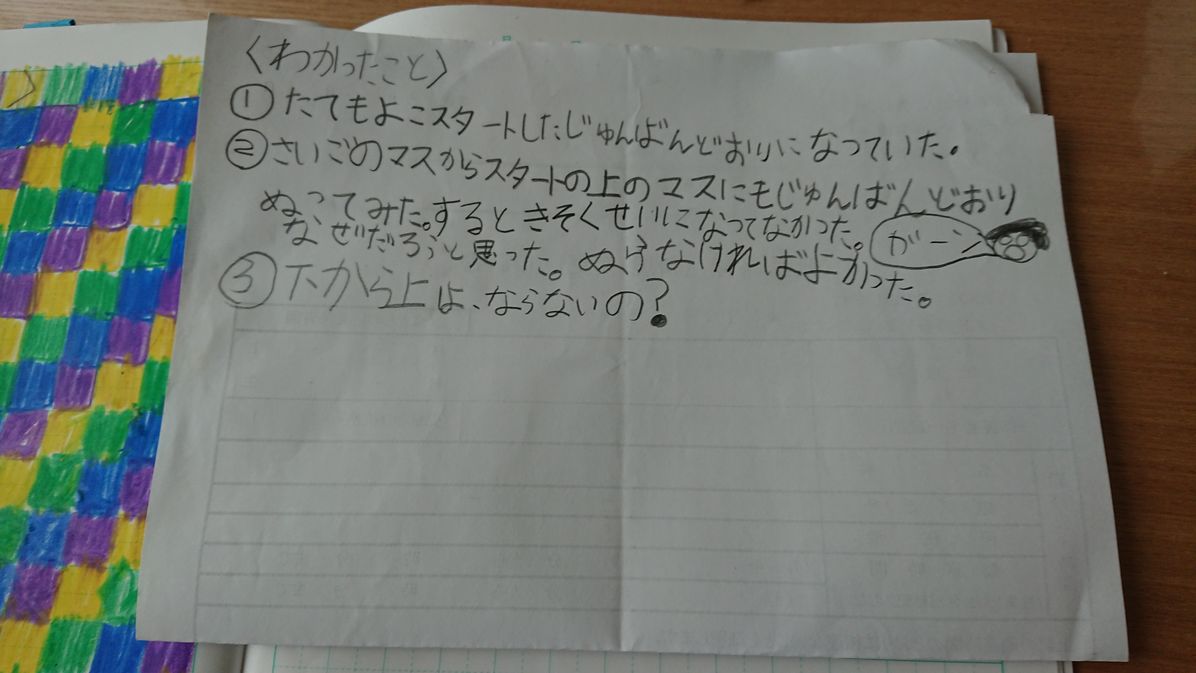 〈わかったこと〉
①たてもよこスタートしたじゅんばんどおりになっていた。
②さいごのマスからスタートの上のマスにもじゅんばんどおり
ぬってみた。するときそくせいになってなかった。
なぜだろうと思った。ぬらなければよかった。
ガーン
③下から上は、ならないの?